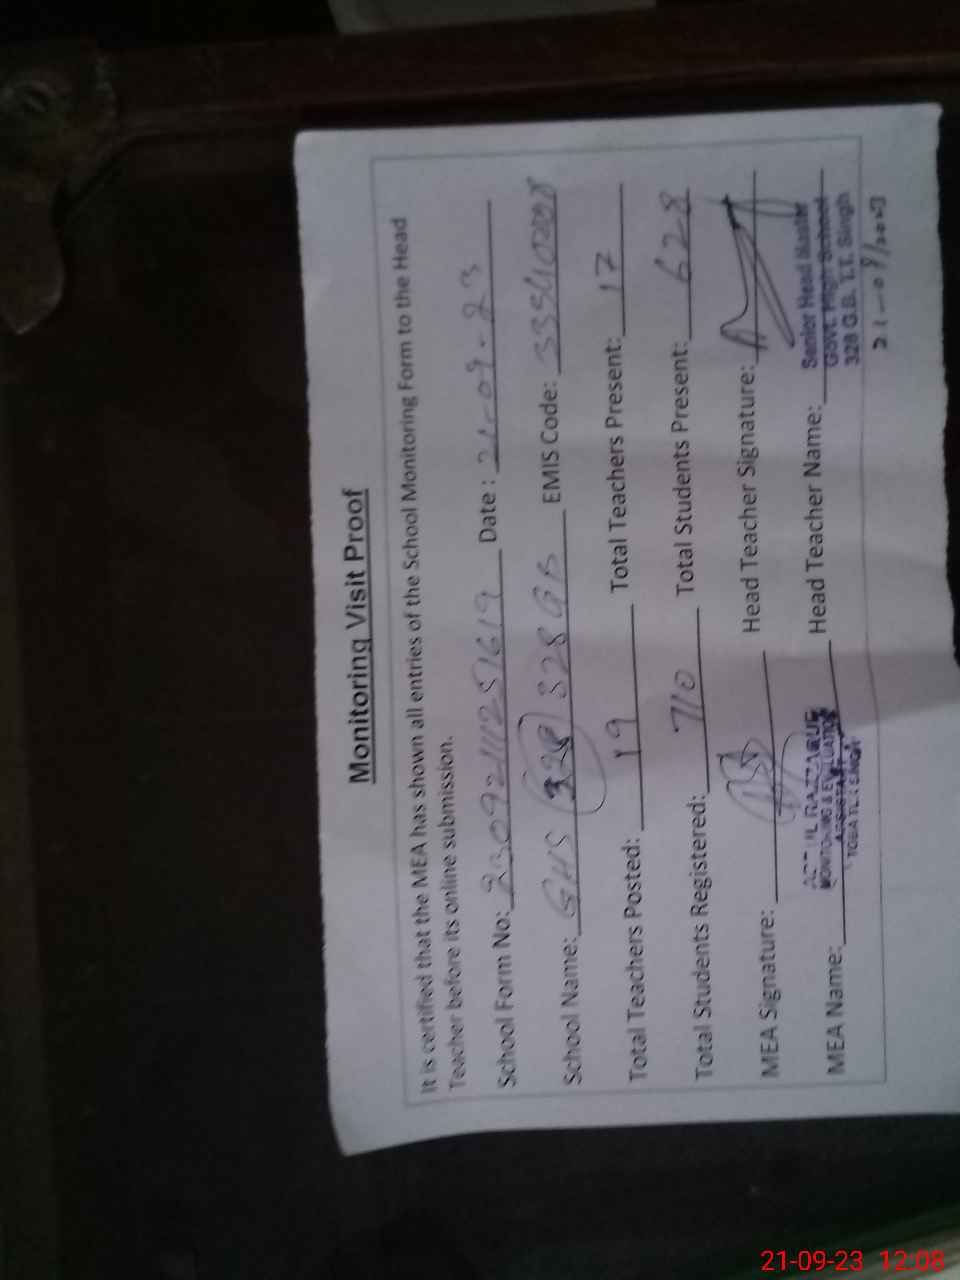 Monitoring Visit Proof
It is certified that the MEA has shown all entries of the School Monitoring Form to the Head
Teacher before its online submission.
School Form No: Date : 21-09-23
School Name: GHS 328 328 GB EMIS Code:
Total Teachers Posted: 19 Total Teachers Present: 17
Total Students Registered: 710 Total Students Present: 628
MEA Signature: Head Teacher Signature:
MEA Name: Head Teacher Name:
RAZZAQUE
MONITORING & EVALUATION
ASSISTANT
TOBA TEK SINGH
Senior Head Master
Govt. High School
328 G.B. T.T. Singh
21-09/2023
21-09-23 12:08